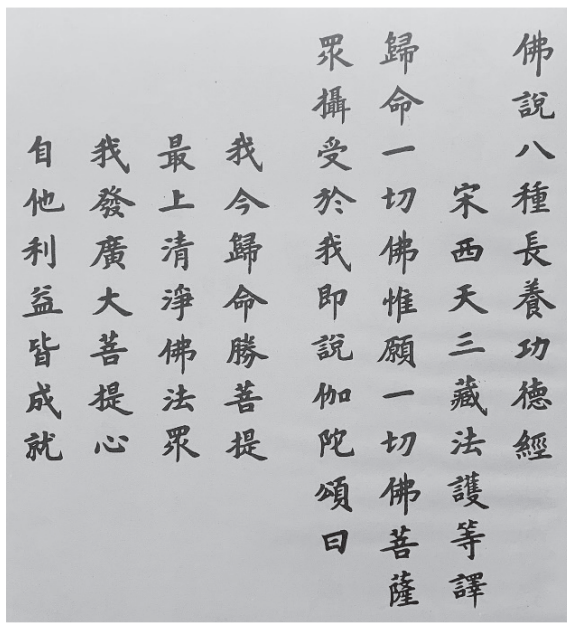 佛說八種長養功德經
宋西天三藏法護等譯
歸命一切佛惟願一切佛菩薩
眾攝受於我即說伽陀頌曰
我今歸命勝菩提
最上清淨佛法眾
我發廣大菩提心
自他利益皆成就